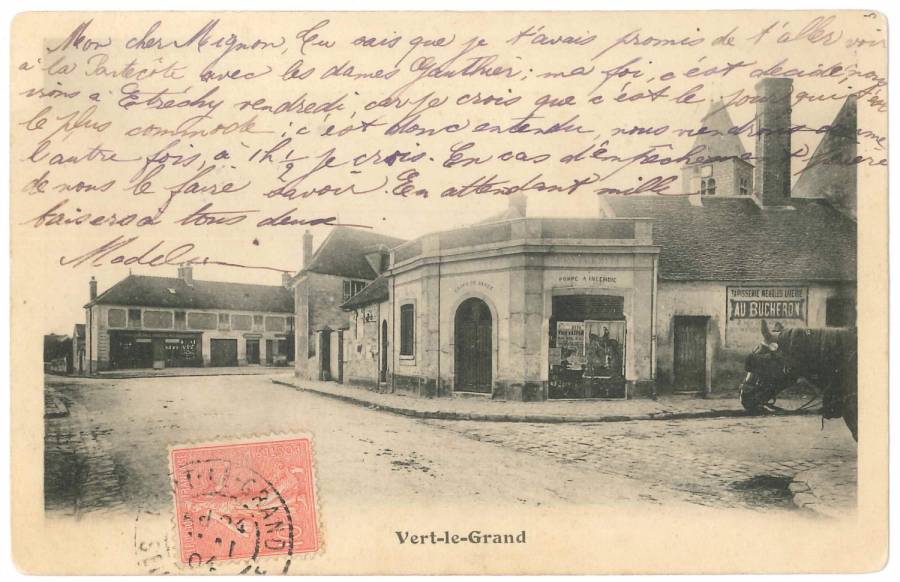 Mon cher Mignon, Tu sais que je t'avais promis de t'aller voir
à la Pentecôte avec les dames Gauthier; ma foi, c'est décidé nous
irons à Etréchy vendredi, car je crois que c'est le jour qui
le plus commode; c'est donc entendu, nous viendrons comme
l'autre fois, à 1h ½ je crois. En cas d'empêchement prière
de nous le faire savoir. En attendant mille
baisers à tous deux
POMPE A INCENDIE
CORPS DE GARDE
TAPISSERIE MEUBLES LITERIE
AU BUCHERON
POSTES
VERT-LE-GRAND
04
Vert-le-Grand